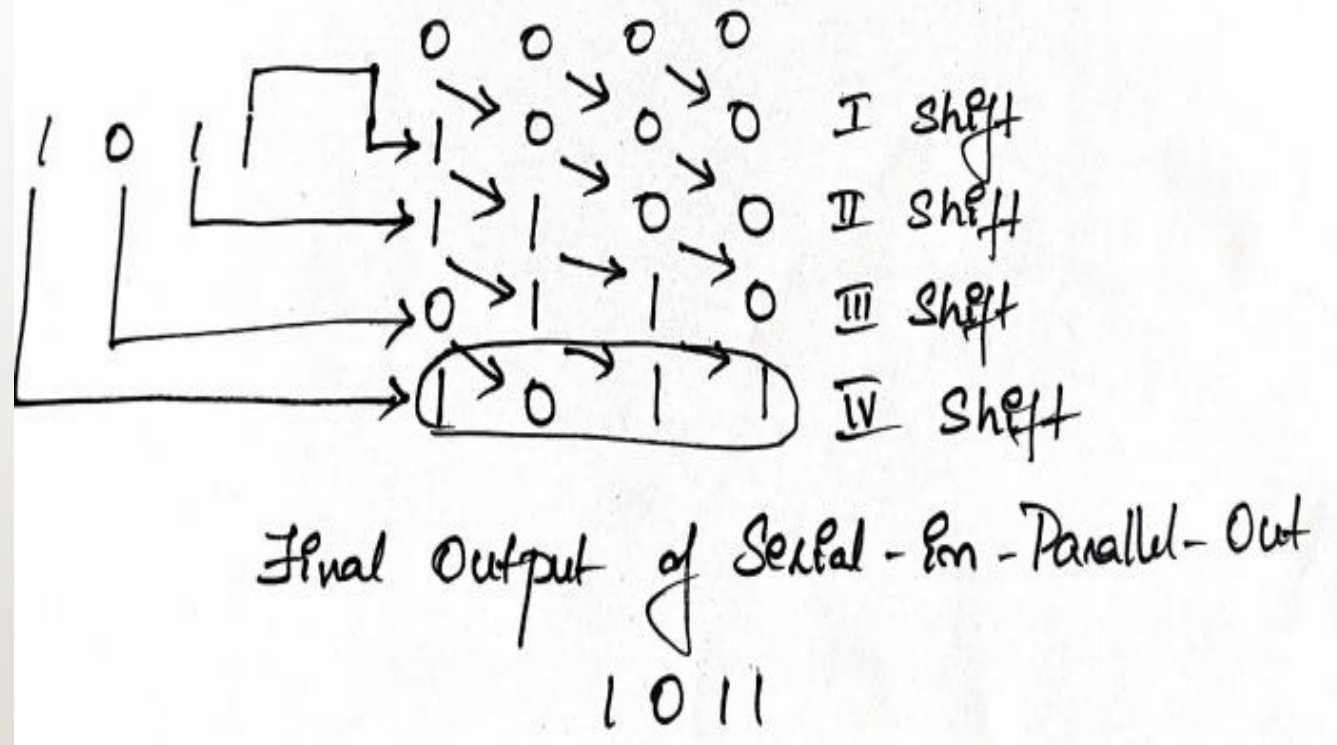 0 0 0 0
1 0 1 1
1 0 0 0 I Shift
1 1 0 0 II Shift
0 1 1 0 III Shift
1 0 1 1 IV Shift
Final Output of Serial-In-Parallel-Out
1 0 1 1